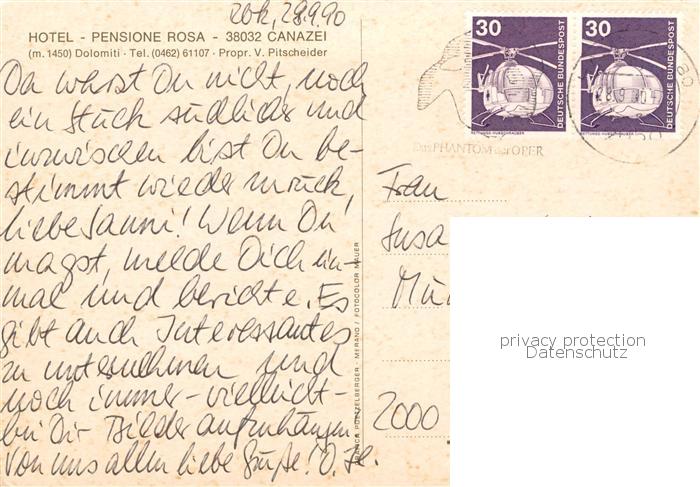 28.9.90
HOTEL - PENSIONE ROSA - 38032 CANAZEI
(m. 1450) Dolomiti - Tel. (0462) 61107 - Propr. V. Pitscheider
Da warst Du nicht, noch
ein Stück südlich und
inzwischen bist Du be-
stimmt wieder zurück,
liebe Sanni! Wenn Du
magst, melde Dich ein-
mal und berichte. Es
gibt auch Interessantes
zu unternehmen und
noch immer - vielleicht -
bei Dir Bilder aufzuhängen.
Von uns allen liebe Grüße!
30
DEUTSCHE BUNDESPOST
RETTUNGS-HUBSCHRAUBER
30
DEUTSCHE BUNDESPOST
RETTUNGS-HUBSCHRAUBER
Das PHANTOM der OPER
Frau
Susa
Mün
2000
MERANO / FOTOCOLOR MAUER
privacy protection
Datenschutz